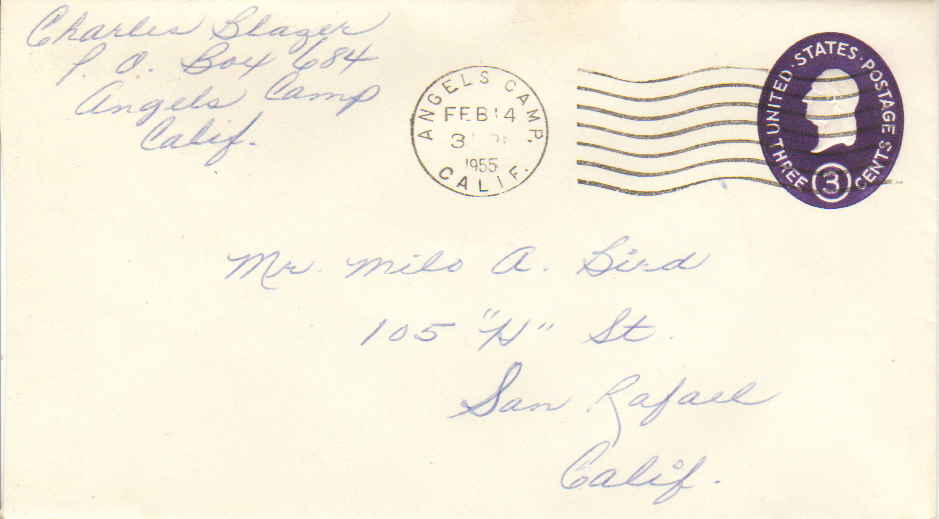 Charles Blazer
P. O. Box 684
Angels Camp
Calif.
ANGELS CAMP,
FEB 14
3
1955
CALIF.
UNITED · STATES · POSTAGE
THREE 3 CENTS
Mr. Milo A. Bird
105 "H" St.
San Rafael
Calif.